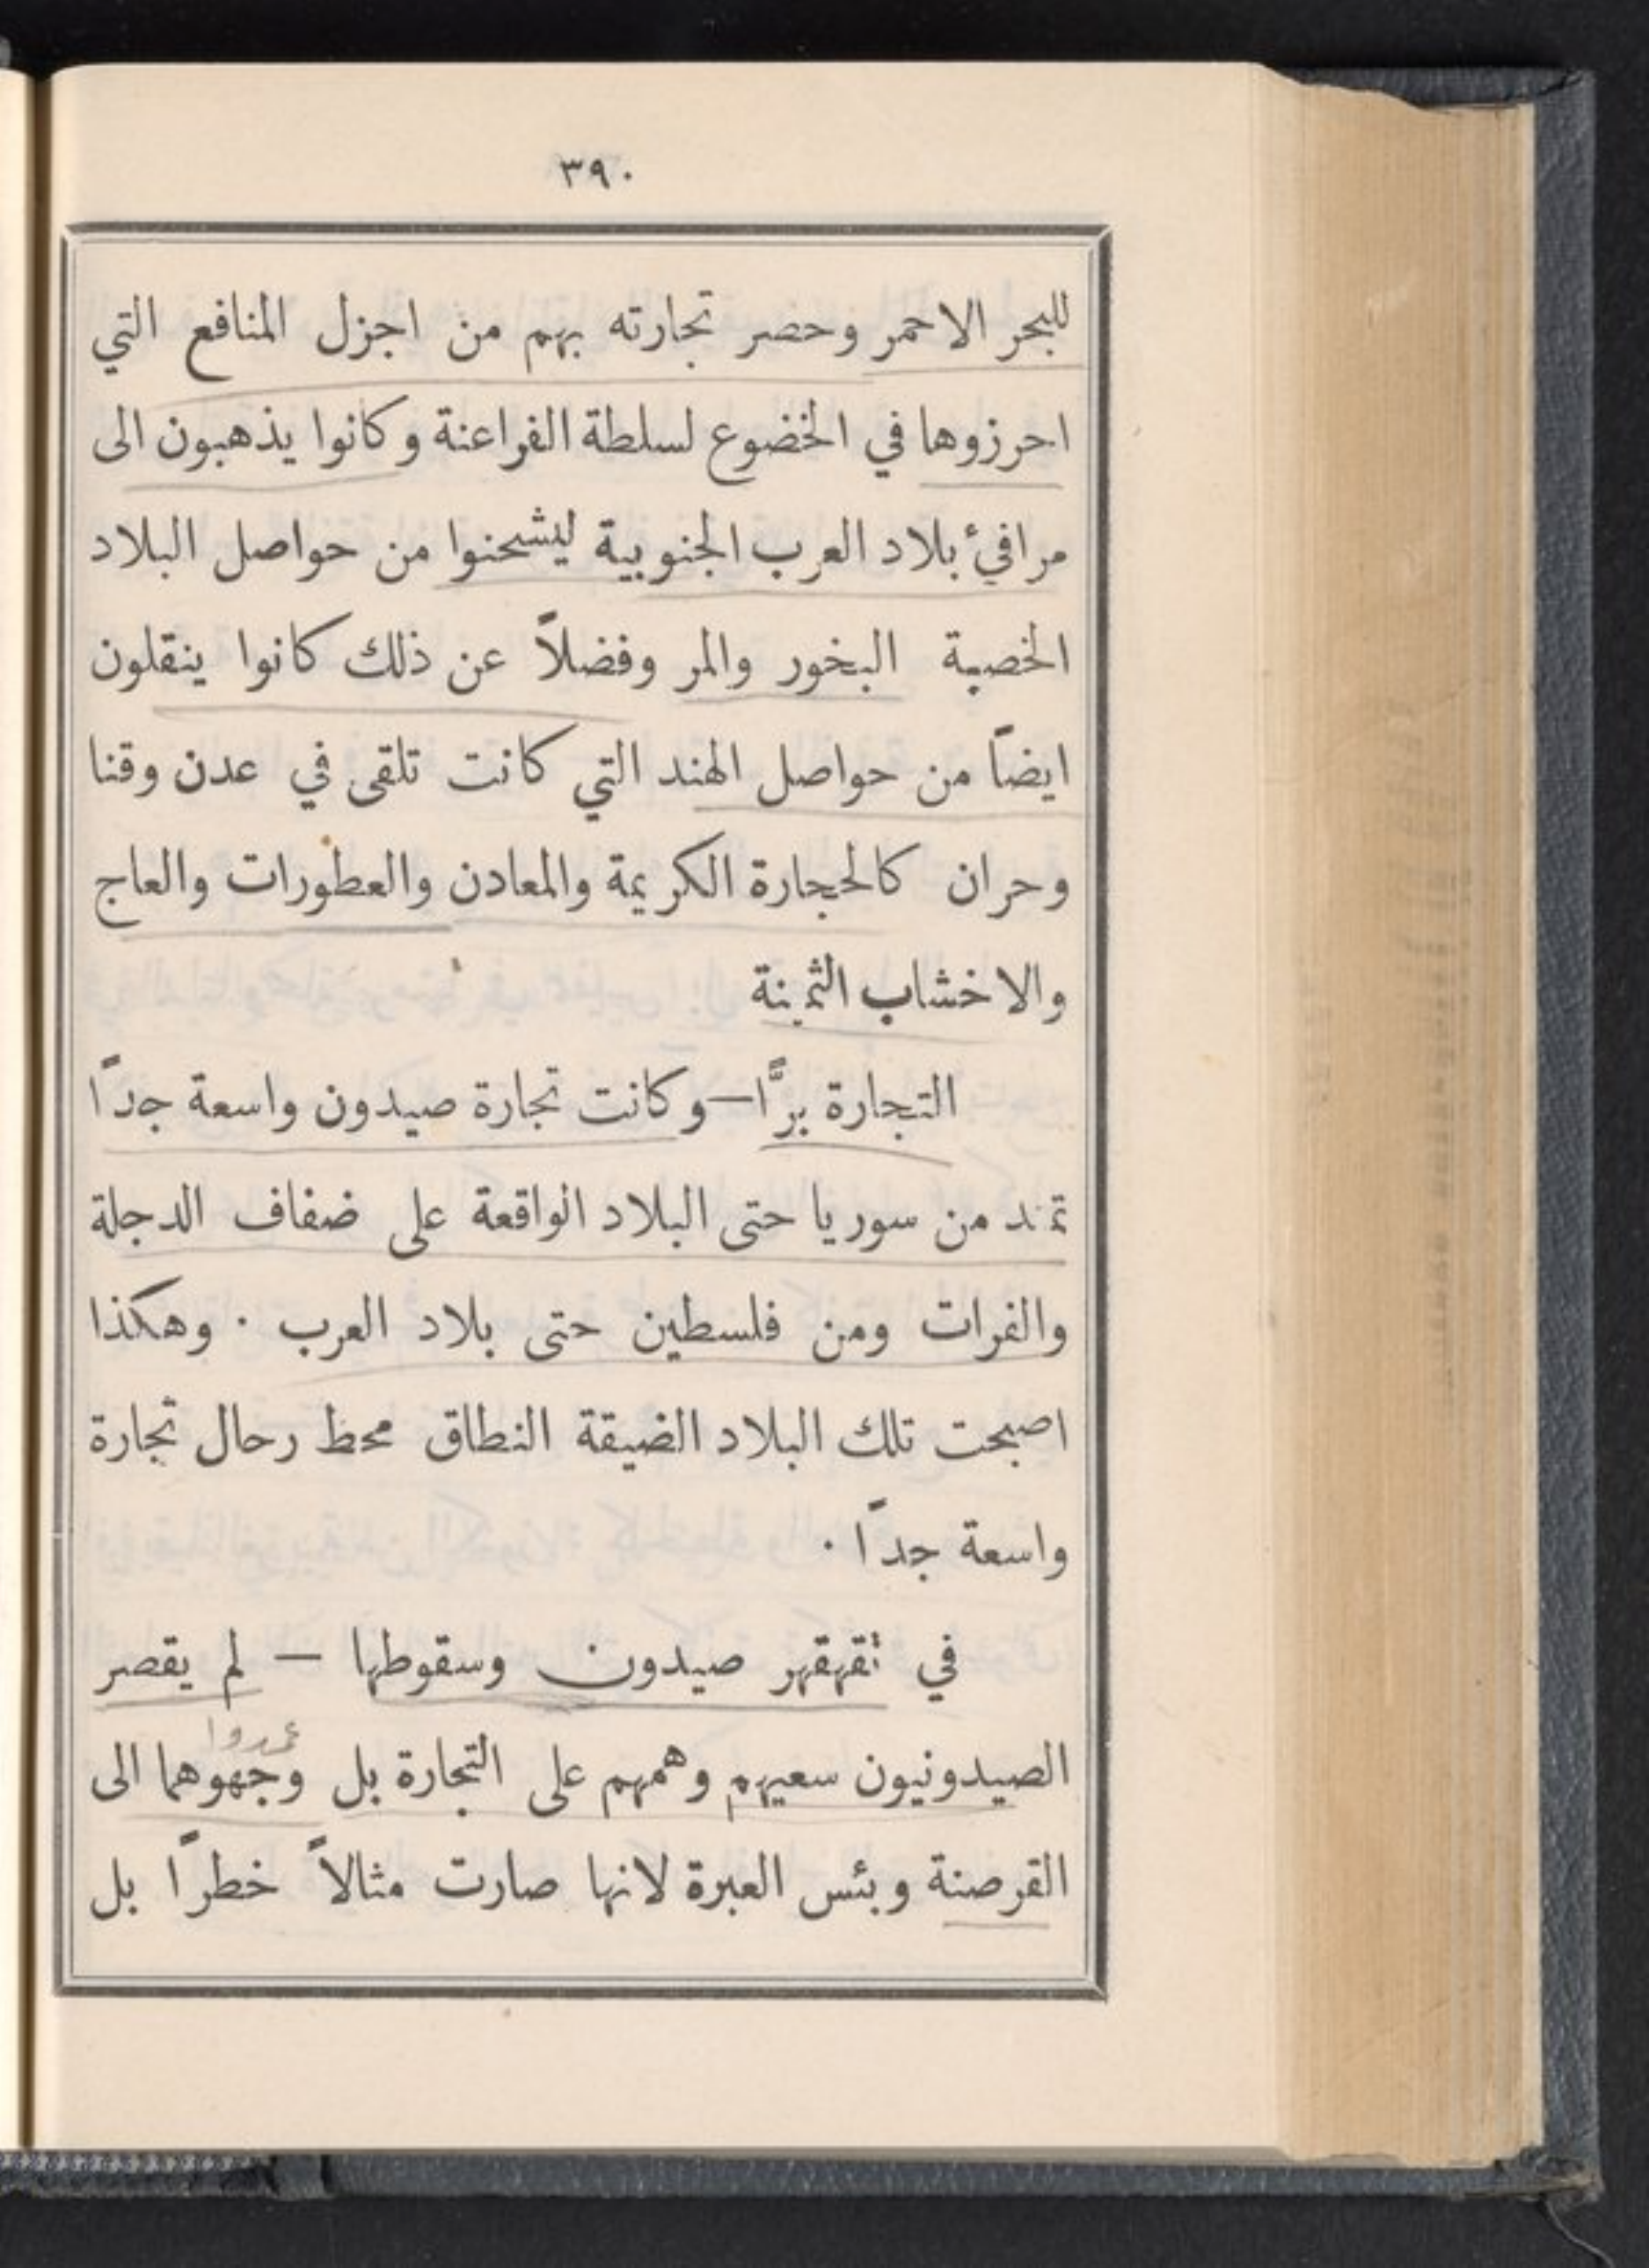 ٣٩٠
للبحر الاحمر وحصر تجارته بهم من اجزل المنافع التي
احرزوها في الخضوع لسلطة الفراعنة وكانوا يذهبون الى
مرافئ بلاد العرب الجنوبية ليشحنوا من حواصل البلاد
الخصبة البخور والمر وفضلاً عن ذلك كانوا ينقلون
ايضاً من حواصل الهند التي كانت تلقى في عدن وقنا
وحران كالحجارة الكريمة والمعادن والعطورات والعاج
والاخشاب الثمينة
التجارة برًّا—وكانت تجارة صيدون واسعة جداً
تمتد من سوريا حتى البلاد الواقعة على ضفاف الدجلة
والفرات ومن فلسطين حتى بلاد العرب ٠ وهكذا
اصبحت تلك البلاد الضيقة النطاق محط رحال تجارة
واسعة جداً ٠
في تقهقهر صيدون وسقوطها — لم يقصر
عمدوا
الصيدونيون سعيهم وهمهم على التجارة بل وجهوهما الى
القرصنة وبئس العبرة لانها صارت مثالاً خطراً بل